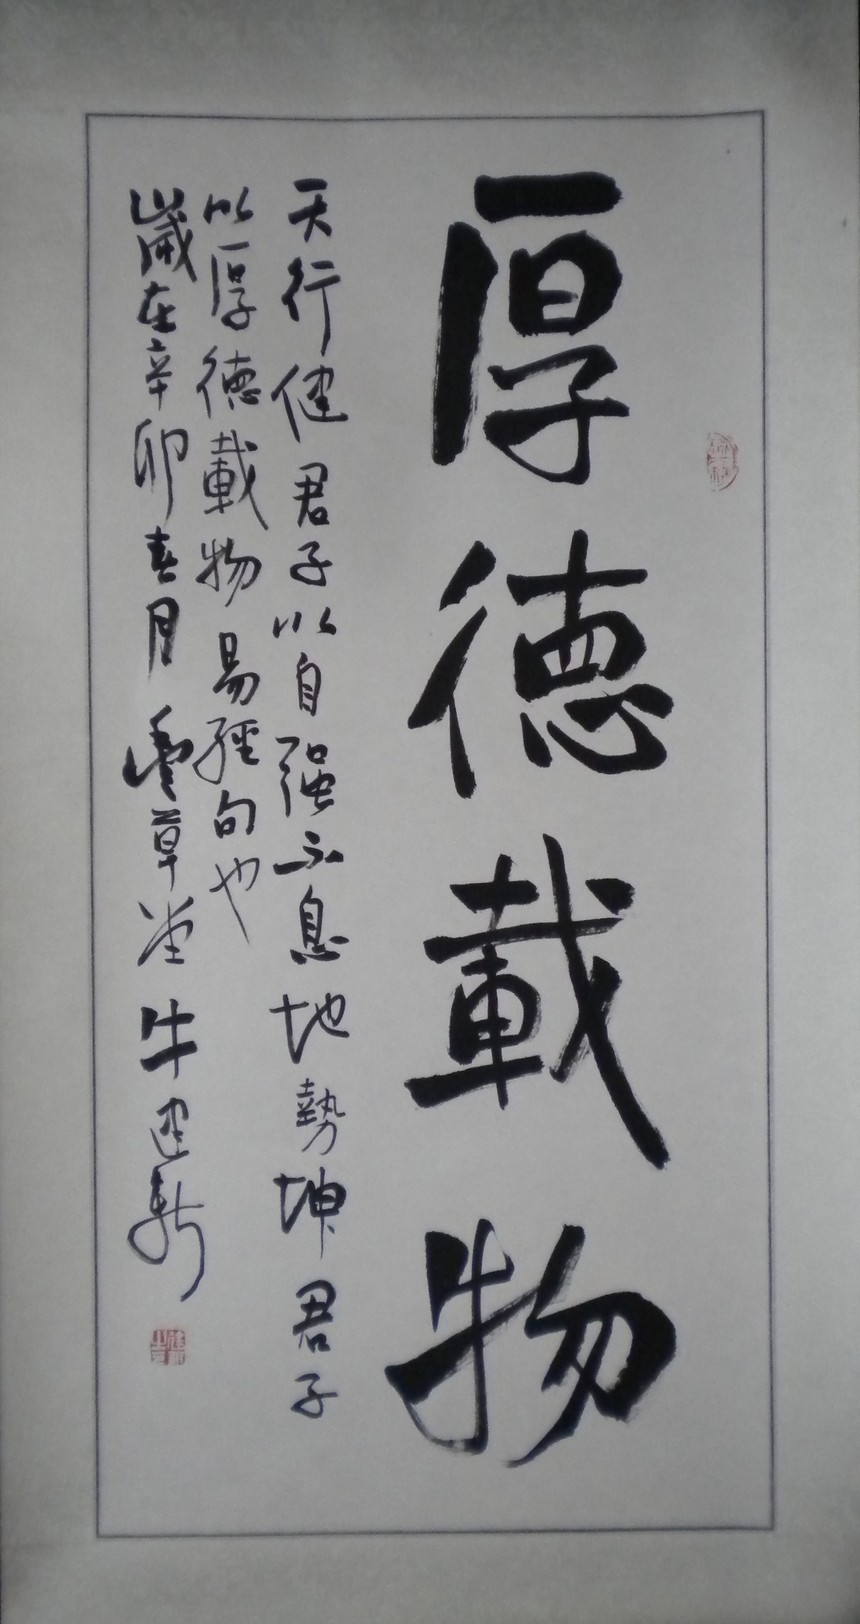 厚德載物
天行健君子以自强不息地勢坤君子
以厚德載物易經句也
歲在辛卯春月 草堂牛建新